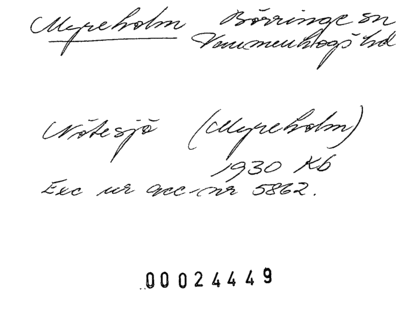 Myreholm Börringe sn
Vemmenhögs hd
Nötesjö (Myreholm)
1930 Kb
Exc ur acc-nr 5862.
00024449